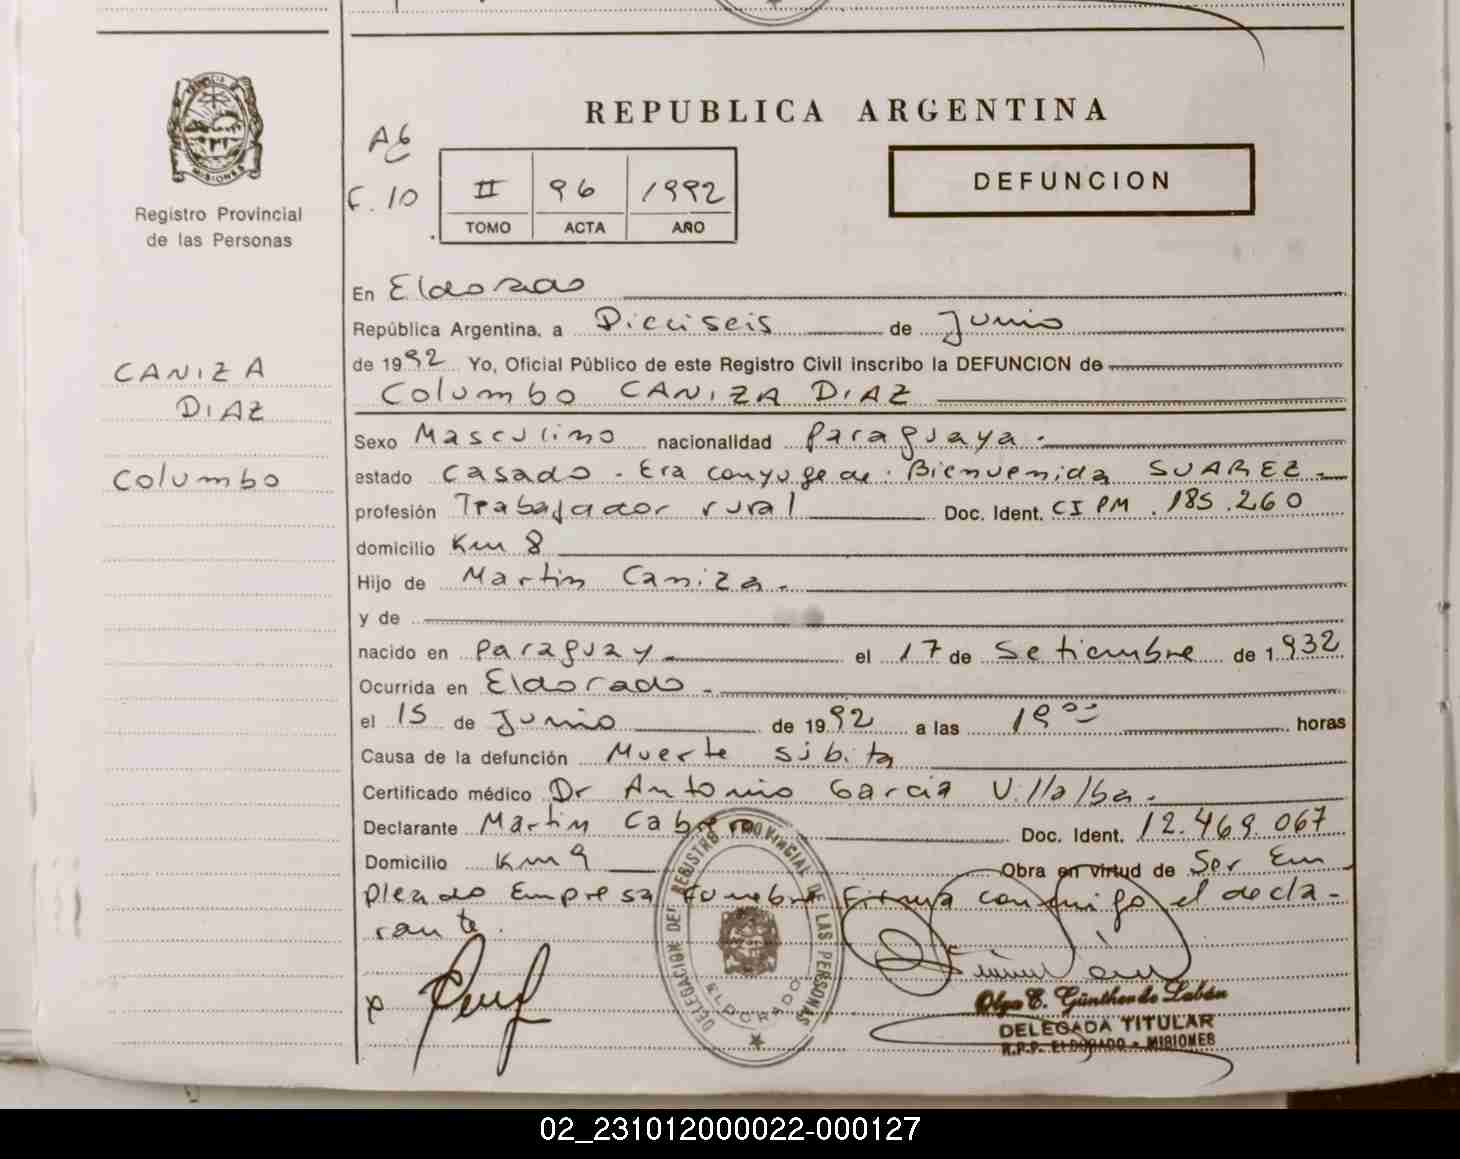 REPUBLICA ARGENTINA
MISIONES
Registro Provincial
de las Personas
F. 10
II 96 1992
TOMO ACTA AÑO
DEFUNCION
CANIZA
DIAZ
Columbo
En Eldorado
República Argentina, a Dieciseis de Junio
de 1992 Yo, Oficial Público de este Registro Civil inscribo la DEFUNCION de
Columbo CANIZA DIAZ
Sexo Masculino nacionalidad Paraguaya.
estado Casado. Era conyuge de: Bienvenida SUAREZ.
profesión Trabajador rural Doc. Ident. CI PM. 185.260
domicilio Km 8
Hijo de Martin Caniza.
y de
nacido en Paraguay el 17 de Setiembre de 1932
Ocurrida en Eldorado.
el 15 de Junio de 1992 a las 19⁰⁰ horas
Causa de la defunción Muerte súbita
Certificado médico Dr Antonio Garcia Villalba.
Declarante Martin Cabrera Doc. Ident. 12.469.067
Domicilio Km 9 Obra en virtud de Ser Em
pleado Empresa Funebre Firma conmigo el decla-
rante.
DELEGACION DEL REGISTRO PROVINCIAL DE LAS PERSONAS
ELDORADO
Olga E. Günther de Labán
DELEGADA TITULAR
R.P.P. ELDORADO - MISIONES
02_231012000022-000127